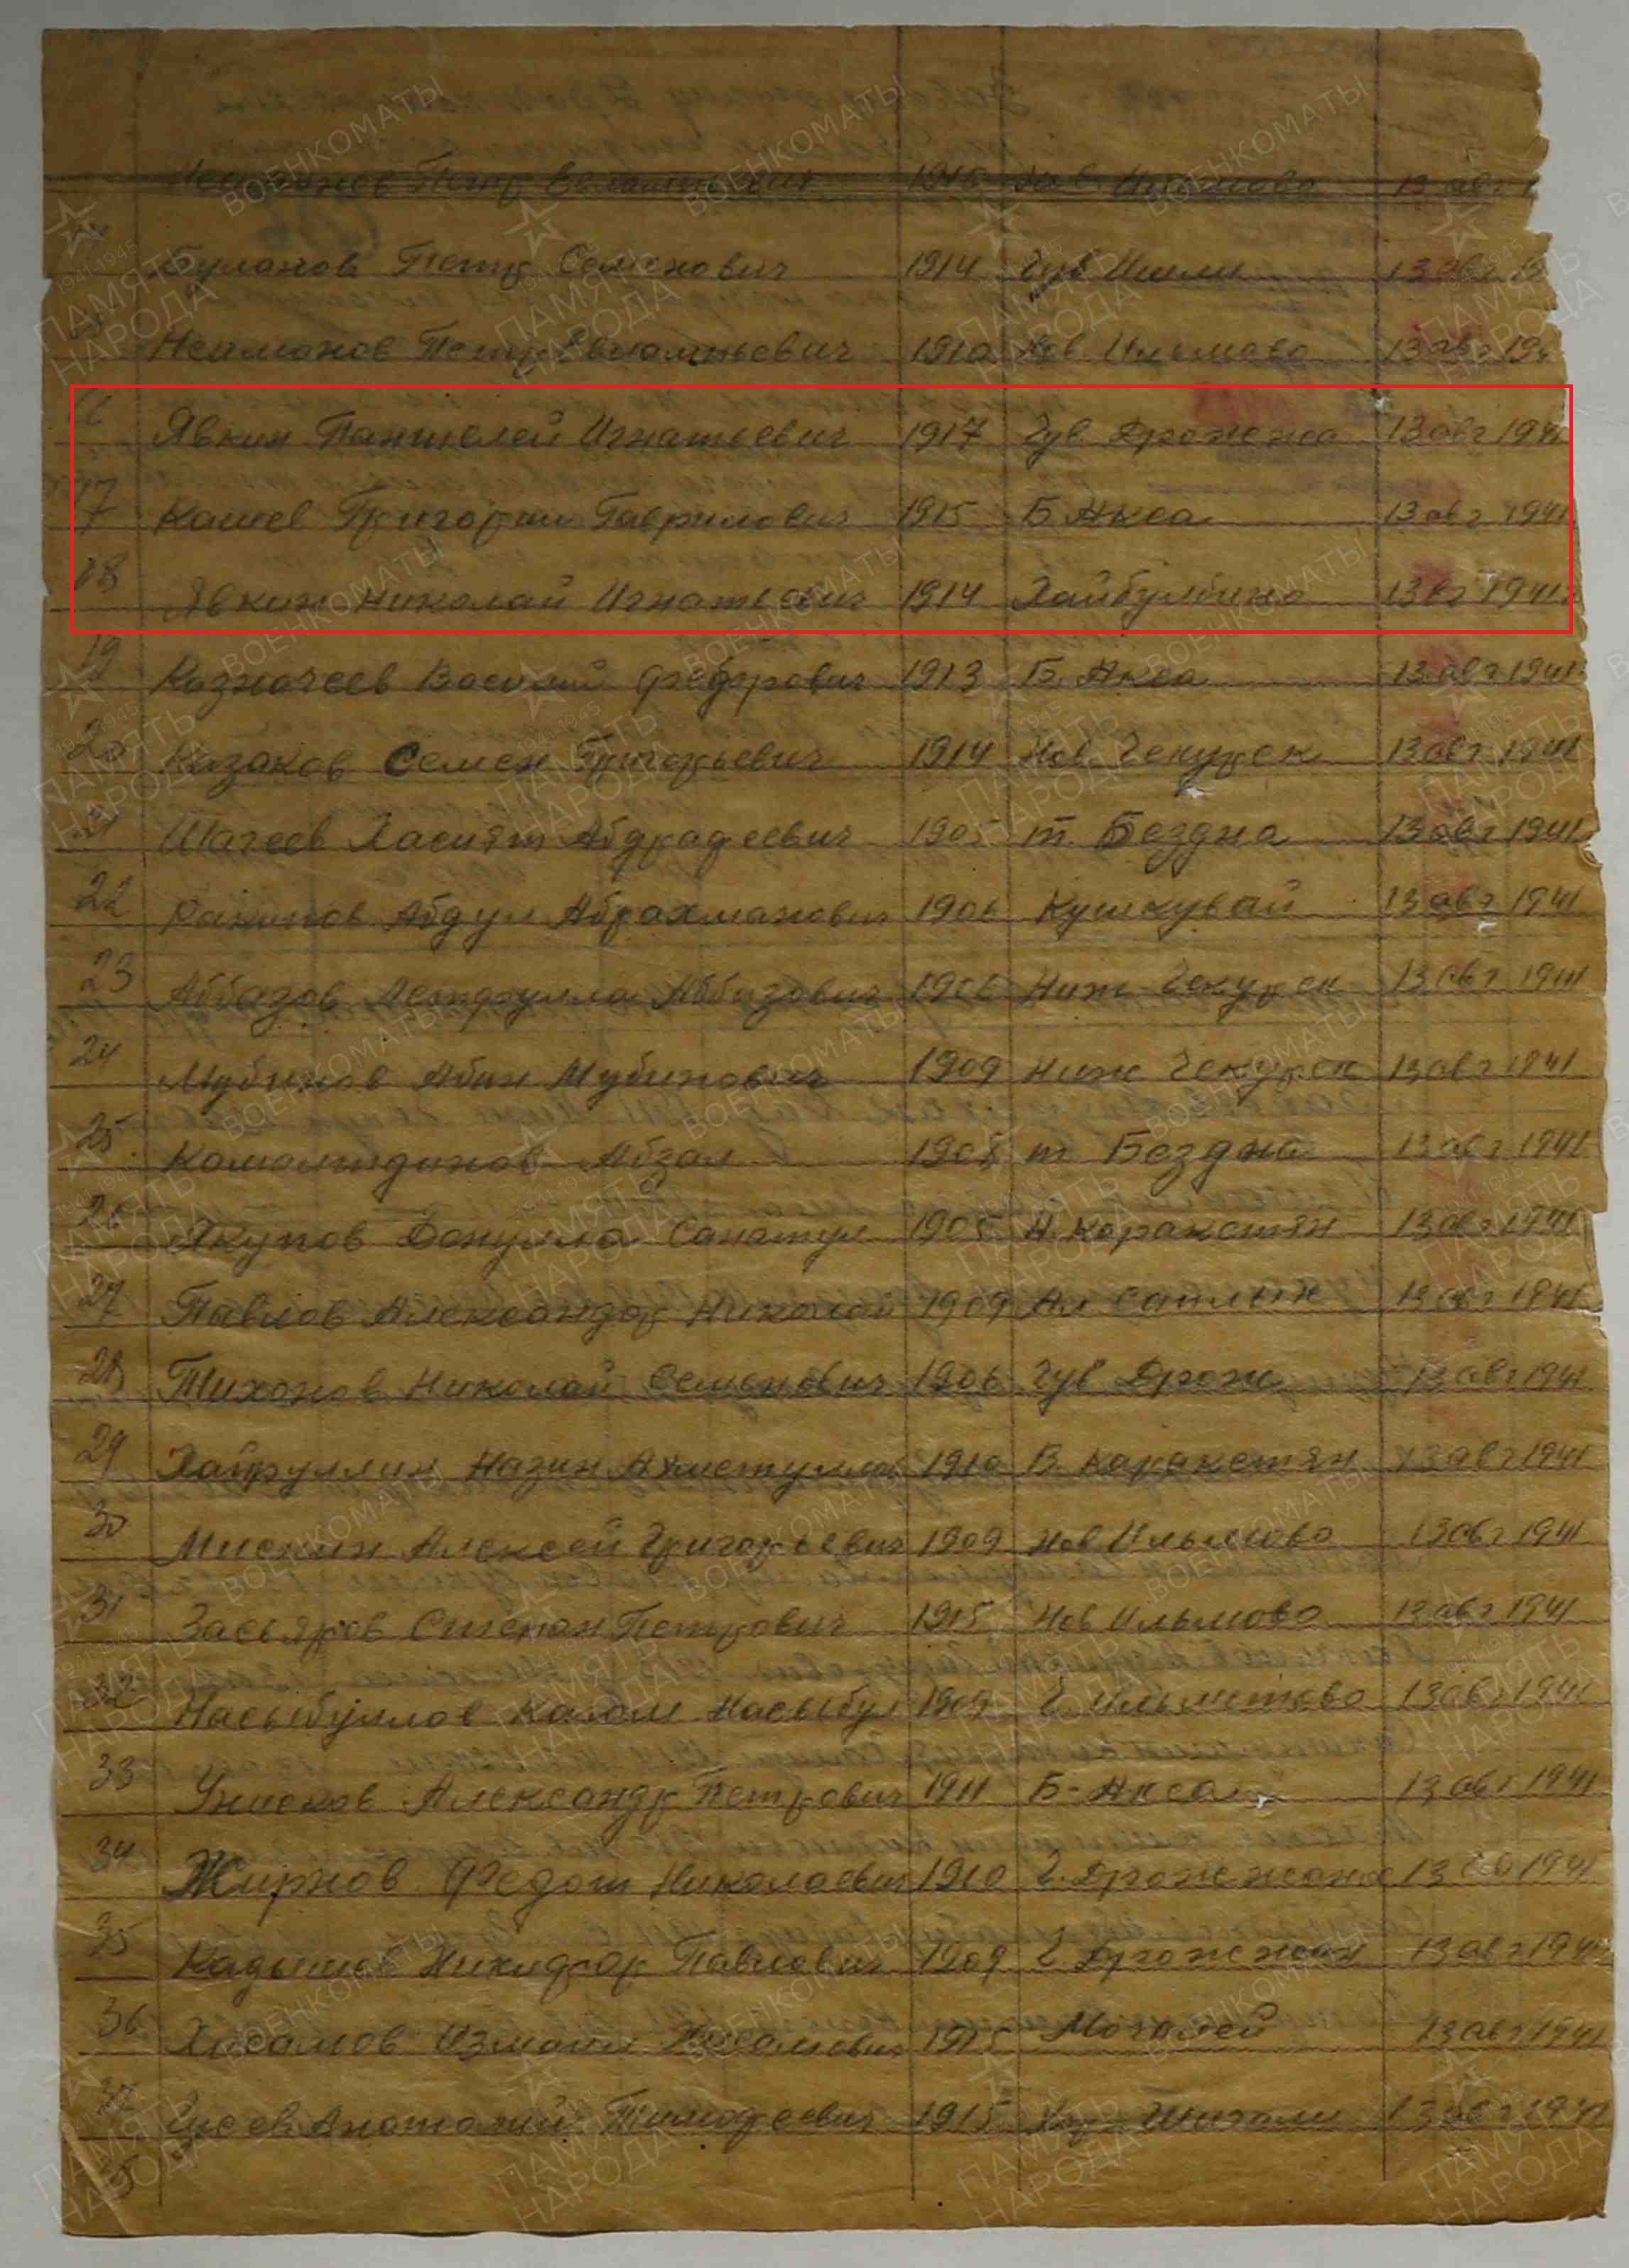 Буланов Петр Семенович 1914 Чув Ишли 13 авг 19
Неимонов Петр Евлампьевич 1910 Нов Ильмово 13 авг 19
16 Явкин Пантелей Игнатьевич 1917 Чув. Дрожжа 13 авг 194
17 Кашев Григории Гаврилович 1915 Б Акса 13 авг 1941
18 Явкин Николай Игнатьевич 1914 Хайбулбино 13 вг 1941
19 Казначеев Василий Федорович 1913 Б. Акса 13 авг 1941
20 Казаков Семен Григорьевич 1914 Нов. Чекурск 13 авг 1941
21 Шагеев Абдрадеевич 1905 т. Бездна 13 авг 1941
22 Рахипов Абдул Абрахманович 1906 Кушкувай 13 авг 1941
23 Аббазов Летфулла Аббизович 1906 Ниж Чекурск 13 авг 1941
24 Мубинов Абин Мубинович 1909 Ниж Чекурск 13 авг 1941
25 Камалтдинов Абзал 1908 т Бездна 13 авг 1941
26 Якупов Санатул 1905 Н. Каракетян 13 авг 1941
27 Павлов Александр Николай 1909 Ал Сатлын 13 авг 1941
28 Тихонов Николай Семенович 1906 Чув Дрож 13 авг 1941
29 Хайруллин Назин Ахметуллов 1910 В. Каракетян 13 авг 1941
30 Мискин Алексей Григорьевич 1909 Нов Ильмово 13 авг 1941
31 Засьяров Степан Петрович 1915 Нов Ильмово 13 авг 1941
32 Насыбуллов Калам Насыбул 1909 Ч. Ильметево 13 авг 1941
33 Унисков Александр Петрович 1911 Б-Акса 13 авг 1941
34 Жирнов Федот Николаевич 1910 Ч. Дрожжана 13 ав 1941
35 Кадышев Никифор Павлович 1909 Ч Дрожжан 13 авг 1941
36 Хасамов Измаил Хасамович 1915 Мочалей 13 авг 1941
37 Гусев Анатолий Тимофеевич 1915 Хор-Шигали 13 авг 1941
ПАМЯТЬ НАРОДА
1941-1945
ВОЕНКОМАТЫ